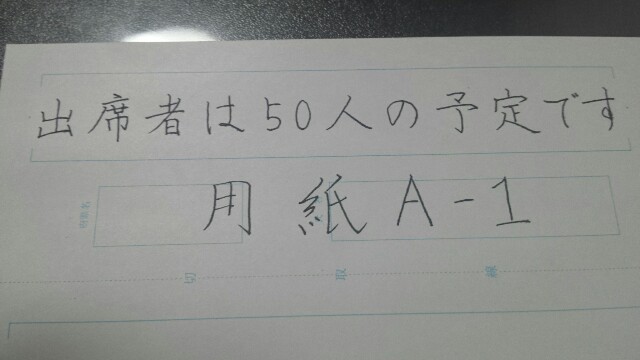 出席者は50人の予定です
用紙A-1
切取線